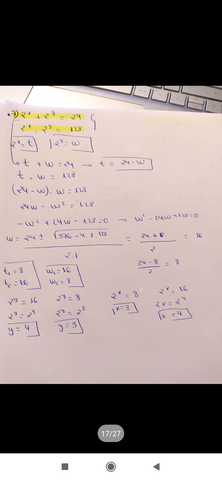 3) 2ˣ + 2ʸ = 24
2ˣ · 2ʸ = 128
2ˣ = t 2ʸ = w
t + w = 24 → t = 24 - w
t · w = 128
(24 - w) · w = 128
24w - w² = 128
-w² + 24w - 128 = 0 → w² - 24w + 128 = 0
w = 24 ± √576 - 4.1.128 = 24 + 8 = 16
2.1 2
24 - 8 = 8
2
t₁ = 8 w₁ = 16
t₂ = 16 w₂ = 8
2ʸ = 16 2ʸ = 8 2ˣ = 8 2ˣ = 16
2ʸ = 2⁴ 2ʸ = 2³ x = 3 2ˣ = 2⁴
y = 4 y = 3 x = 4
17/27